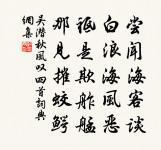 嘗聞海客談
白浪海風惡
祗是欺舴艋
那見摧蛟鰐
吴潜秋風叹四首詞典
網集